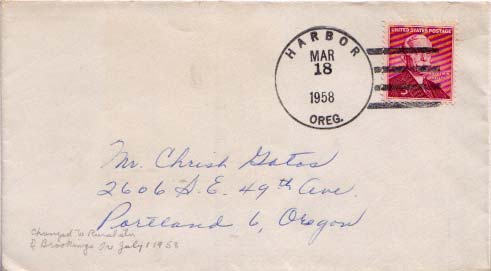 HARBOR
MAR
18
1958
OREG.
UNITED STATES POSTAGE
Mr. Chrish Gatos
2606 S.E. 49th Ave.
Portland 6, Oregon
Changed to Rural Sta
Brookings Ore July 1 1958